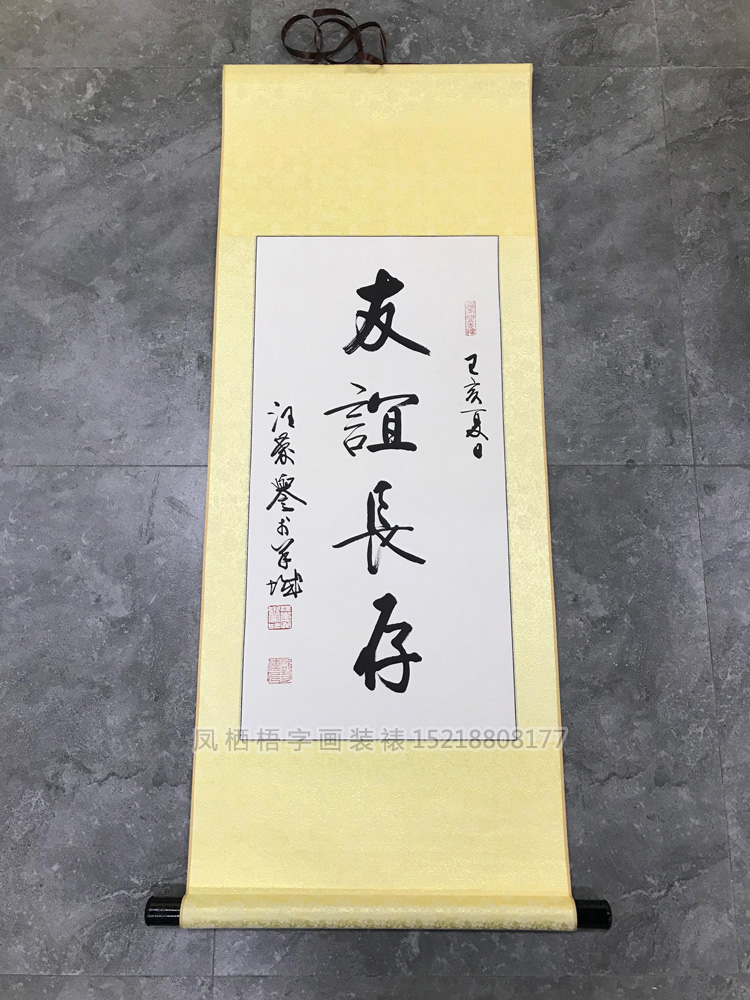 友誼長存
己亥夏日
汪蒙譽書於羊城
凤栖梧字画装裱15218808177